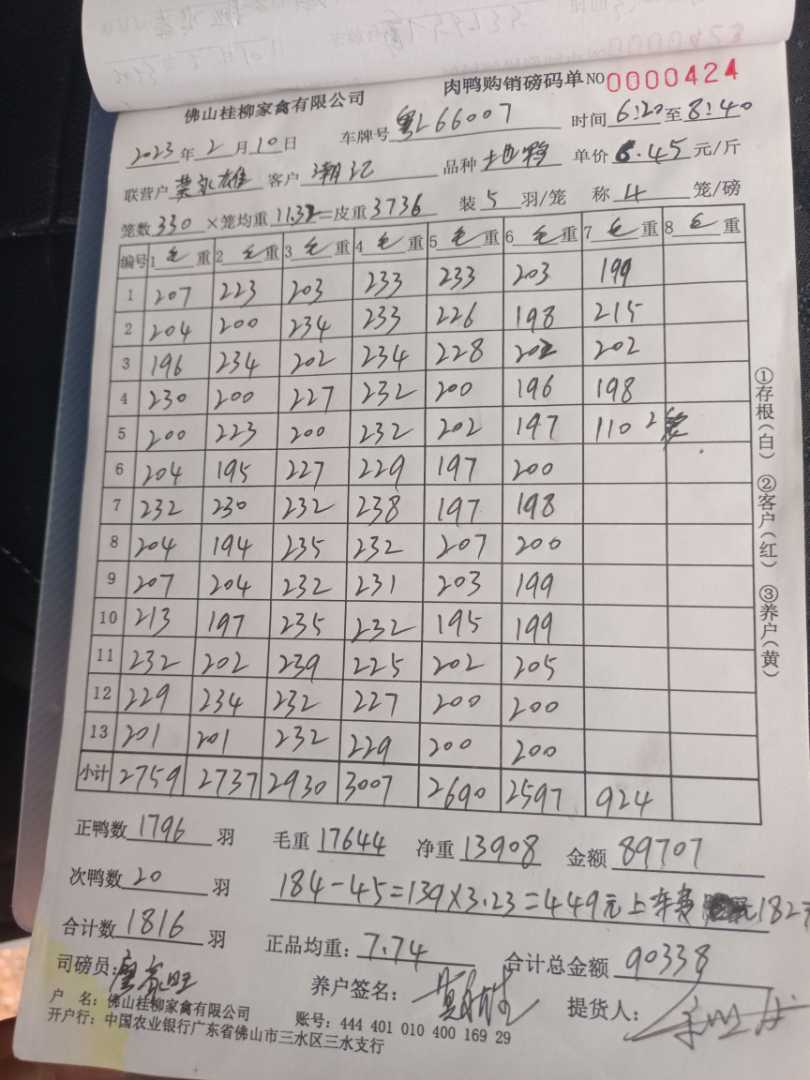 佛山桂柳家禽有限公司 肉鸭购销磅码单 NO 0000424
2023年2月10日 车牌号 粤L66007 时间 6:20至8:40
联营户 莫永雄 客户 潮记 品种 土鸭 单价 6.45 元/斤
笼数 330 ×笼均重 11.32 =皮重 3736 装 5 羽/笼 称 4 笼/磅
编号 1 毛 重 2 毛 重 3 毛 重 4 毛 重 5 毛 重 6 毛 重 7 毛 重 8 毛 重
1 207 223 203 233 233 203 199
2 204 200 234 233 226 198 215
3 196 234 202 234 228 202 202
4 230 200 227 232 200 196 198
5 200 223 200 232 202 197 110 2笼
6 204 195 227 229 197 200
7 232 230 232 238 197 198
8 204 194 235 232 207 200
9 207 204 232 231 203 199
10 213 197 235 232 195 199
11 232 202 239 225 202 205
12 229 234 232 227 200 200
13 201 201 232 229 200 200
小计 2759 2737 2930 3007 2690 2597 924
正鸭数 1796 羽 毛重 17644 净重 13908 金额 89707
次鸭数 20 羽 184-45=139×3.23=449元 上车费 182
合计数 1816 羽 正品均重: 7.74 合计总金额 90338
司磅员: 养户签名: 提货人:
户 名: 佛山桂柳家禽有限公司 账号: 444 401 010 400 169 29
开户行: 中国农业银行广东省佛山市三水区三水支行
①存根(白) ②客户(红) ③养户(黄)